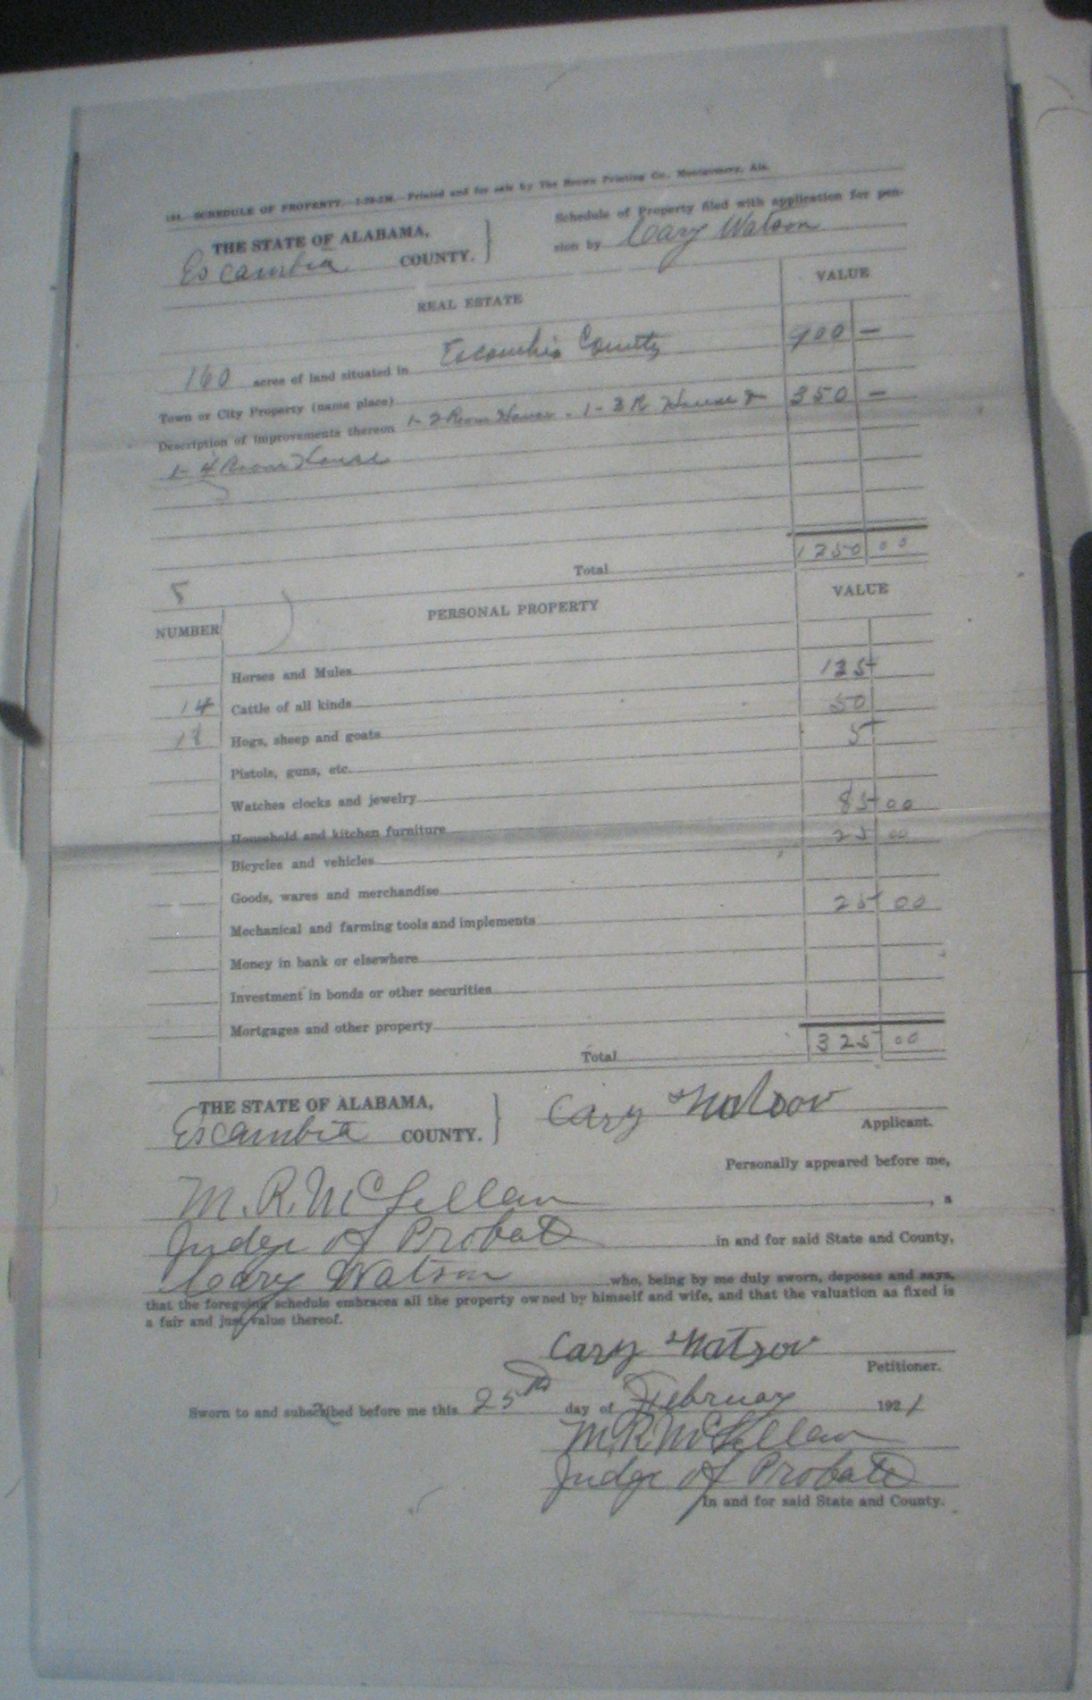 SCHEDULE OF PROPERTY. Printed and for sale by The Brown Printing Co., Montgomery, Ala.
THE STATE OF ALABAMA,
Escambia COUNTY.
Schedule of Property filed with application for pen-
sion by Cary Watson
REAL ESTATE VALUE
160 acres of land situated in Escambia County 900 —
Town or City Property (name place)
Description of improvements thereon 1- 2 Room House - 1- 3 R House & 350 —
1- 4 Room House
Total 1250 00
5
NUMBER PERSONAL PROPERTY VALUE
Horses and Mules 125
14 Cattle of all kinds 50
18 Hogs, sheep and goats 5
Pistols, guns, etc.
Watches clocks and jewelry 85 00
Household and kitchen furniture 25 00
Bicycles and vehicles
Goods, wares and merchandise 25 00
Mechanical and farming tools and implements
Money in bank or elsewhere
Investment in bonds or other securities
Mortgages and other property
Total 325 00
THE STATE OF ALABAMA,
Escambia COUNTY.
Cary Watson
Applicant.
Personally appeared before me,
M. R. McLellan, a
Judge of Probate in and for said State and County,
Cary Watson who, being by me duly sworn, deposes and says,
that the foregoing schedule embraces all the property owned by himself and wife, and that the valuation as fixed is
a fair and just value thereof.
Cary Watson
Petitioner.
Sworn to and subscribed before me this 25th day of February 1921
M. R. McLellan
Judge of Probate
In and for said State and County.